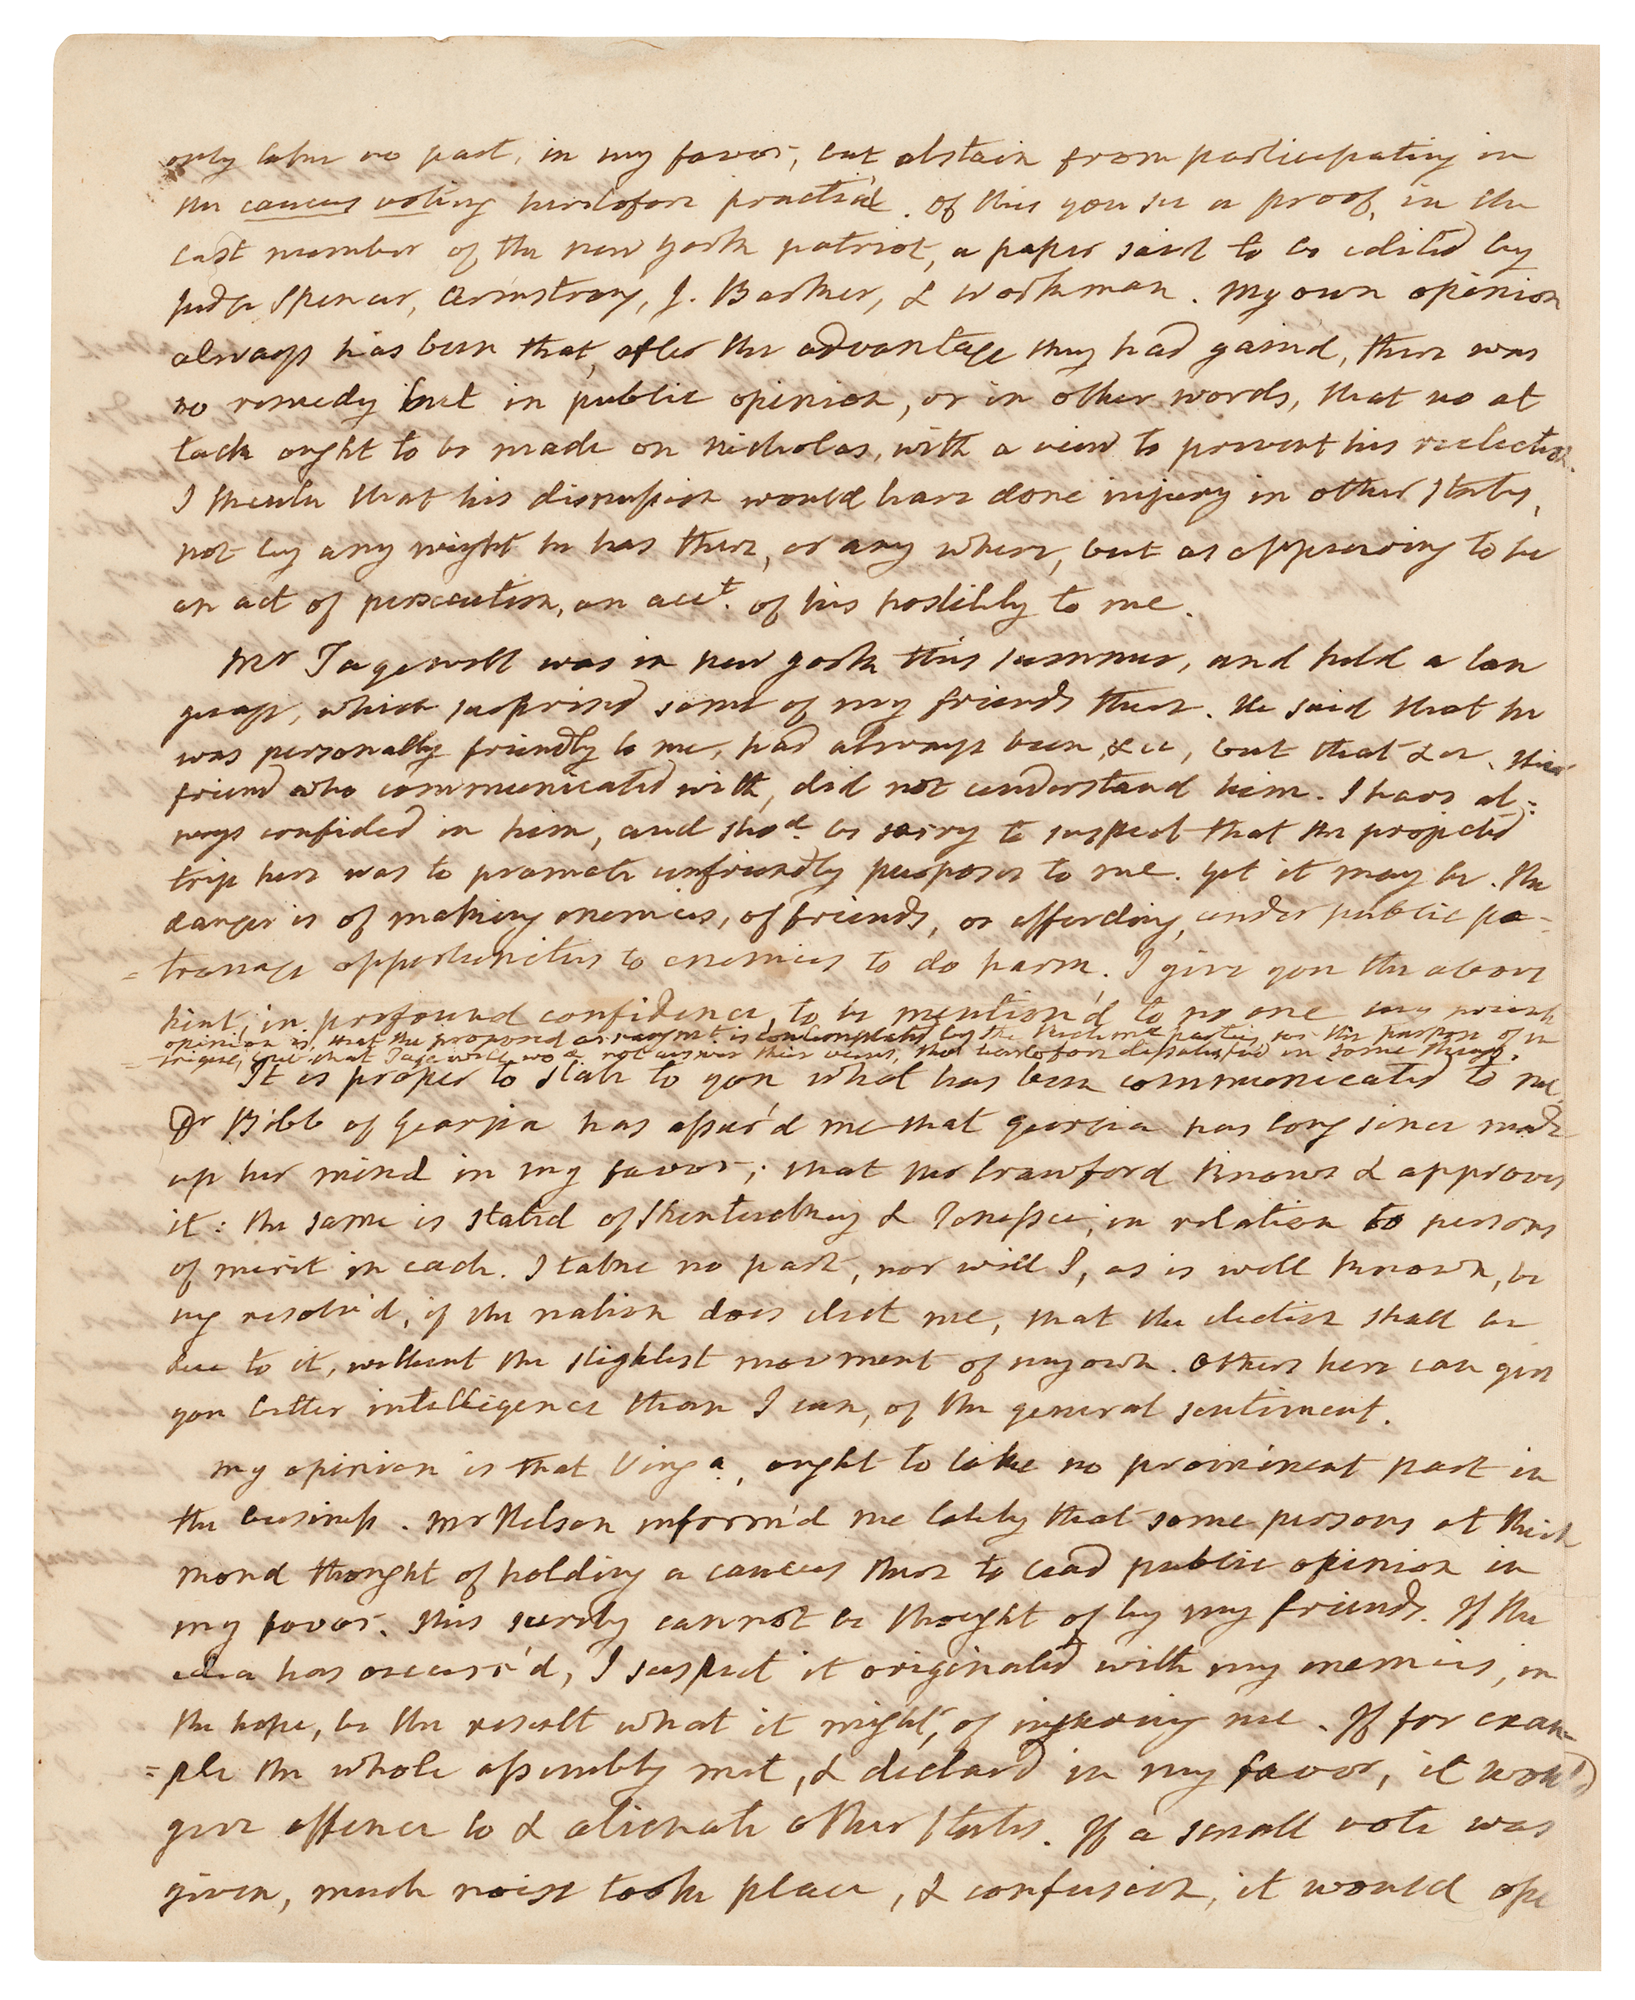 only take no part, in my favor, but abstain from participating in
the caucus voting heretofore practic'd. Of this you see a proof, in the
last number of the new york patriot, a paper said to be edited by
judge Spencer, Armstrong, J. Barker, & Workman. My own opinion
always has been that, after the advantage they had gaind, there was
no remedy but in public opinion, or in other words, that no at
tack ought to be made on Nicholas, with a view to prevent his reelection.
I think that his dismission would have done injury in other States,
not by any weight he has there, or any where, but as appearing to be
an act of persecution, on acct. of his hostility to me.
Mr Tazewell was in new york this summer, and held a lan
guage, which surprised some of my friends there. He said that he
was personally friendly to me, had always been, &c, but that &c. This
friend who communicated with, did not understand him. I have al=
ways confided in him, and shod. be sorry to suspect that the projected
trip here was to promote unfriendly purposes to me. Yet it may be. The
danger is of making enemies, of friends, or affording, under public pa-
=tronage opportunities to enemies to do harm. I give you the above
hint, in profound confidence, to be mention'd to no one my
opinion is, that the proposed arrangmt. is contemplated by the parties for the purpose of in
=trigue, and that Tazewell wod. not answer their views, tho' heretofore dissatisfied in some things.
It is proper to state to you what has been communicated to me.
Dr Bibb of Georgia has assur'd me that georgia has long since made
up her mind in my favor; that Mr Crawford knows & approves
it: the same is stated of Kentuckey & Tenessee, in relation to persons
of merit in each. I take no part, nor will I, as is well known, be
ing resolv'd, if the nation does elect me, that the election shall be
due to it, without the slightest movment of my own. Others here can give
you better intelligence than I can, of the general sentiment.
My opinion is that Virga. ought to take no prominent part in
the business. Mr Nelson inform'd me lately that some persons at Rich
mond thought of holding a caucus there to lead public opinion in
my favor. This surely cannot be thought of by my friends. If the
idea has occurr'd, I suspect it originated with my enemies, in
the hope, be the result what it might, of injuring me. If for exam
=ple the whole assembly met, & declard in my favor, it would
give offence to & alienate other States. If a small vote was
given, much noise took place, & confusion, it would ope